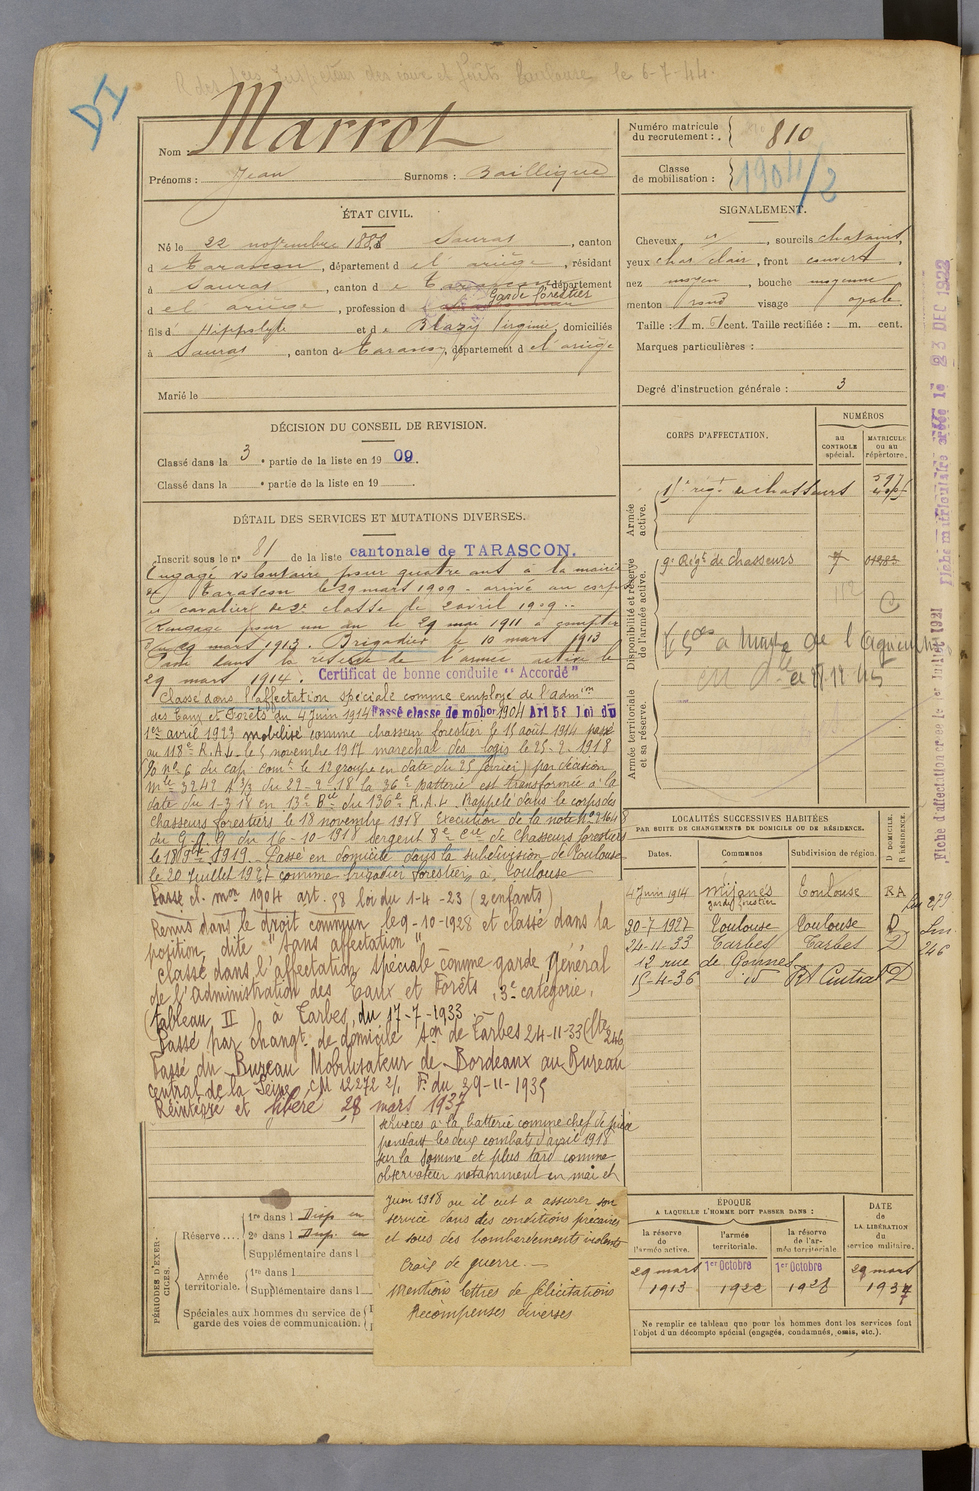 R des Inspecteur des eaux et forêts Toulouse le 6-7-44.
DI
Nom : Marrot
Prénoms : Jean Surnoms : Baillique
Numéro matricule du recrutement : 810
Classe de mobilisation : 1904/2
ÉTAT CIVIL.
Né le 22 novembre 1888 Saurat, canton
de Tarascon, département de l'ariège, résidant
à Saurat, canton de Tarascon, département
de l'ariège, profession de Garde forestier
fils d'Hippolyte et de Blazy Virginie, domiciliés
à Saurat, canton de Tarascon, département de l'ariège
Marié le
SIGNALEMENT.
Cheveux et, sourcils chatains,
yeux chat clair, front couvert,
nez moyen, bouche moyenne
menton rond visage ovale
Taille : 1 m. cent. Taille rectifiée : m. cent.
Marques particulières :
Degré d'instruction générale : 3
DÉCISION DU CONSEIL DE REVISION.
Classé dans la 3e partie de la liste en 1909.
Classé dans la e partie de la liste en 19 .
DÉTAIL DES SERVICES ET MUTATIONS DIVERSES.
Inscrit sous le n° 81 de la liste cantonale de TARASCON.
Engagé volontaire pour quatre ans à la mairie
de Tarascon le 29 mars 1909 - arrivé au corps
et cavalier de 2e classe le 2 avril 1909..
Rengagé pour un an le 29 mai 1911 à compter
du 29 mars 1913. Brigadier le 10 mars 1913
Passé dans la réserve de l'armée active le
29 mars 1914. Certificat de bonne conduite "Accordé"
Classé dans l'affectation spéciale comme employé de l'admon
des Eaux et Forêts du 4 Juin 1914 Passé classe de mobon 1904 Art 58 loi du
1er avril 1923 mobilisé comme chasseur forestier le 15 août 1914 passé
au 118e R.A.L. le 5 novembre 1917 maréchal des logis le 25-2-1918
(O. n° 6 du cap. comt le 12 groupe en date du 25 février) par décision
mlle 3242 A/3 du 22-2-18 la 36e batterie est transformée à la
date du 1-3-18 en 13e Bie du 136e R.A.L. Rappelé dans le corps des
chasseurs forestiers le 18 novembre 1918 Exécution de la note N° 29161/8
du G.Q.G du 16-10-1918 sergent 8e Cie de chasseurs forestiers
le 18 1919. Passé en domicile dans la subdivision de Toulouse
le 20 Juillet 1927 comme brigadier forestier à Toulouse
Passé cl. mon 1904 art. 58 loi du 1-4-23 (2 enfants)
Remis dans le droit commun le 9-10-1928 et classé dans la
position dite "sans affectation"
Classé dans l'affectation spéciale comme garde général
de l'administration des Eaux et Forêts, 3e catégorie,
(tableau II) à Tarbes, du 17-7-1933
Passé par changt de domicile son de Tarbes 24-11-33 (Ln 246
Passé du Bureau Mobilisateur de Bordeaux au Bureau
central de la Seine, CM 12272 2/. F. du 29-11-1935
Réintégré et libéré 28 mars 1937
services à la batterie comme chef de pièce
pendant les deux combats d'avril 1918
sur la somme et plus tard comme
observateur notamment en mai et
Juin 1918 ou il eut a assurer son
service dans des conditions précaires
et sous des bombardements violents
Croix de guerre. —
Mentions lettres de félicitations
Récompenses diverses
CORPS D'AFFECTATION.
NUMÉROS
au CONTROLE spécial.
MATRICULE ou au répertoire.
Armée active.
1er régt de chasseurs 597
Disponibilité et réserve de l'armée active.
9e Régt de chasseurs 7
112
Armée territoriale et sa réserve.
LOCALITÉS SUCCESSIVES HABITÉES
PAR SUITE DE CHANGEMENTS DE DOMICILE OU DE RÉSIDENCE.
Dates. Communes Subdivision de région. D DOMICILE. R RÉSIDENCE.
4 Juin 1914 Mijanès Toulouse RA
garde forestier
30-7-1927 Toulouse Toulouse D
24-11-33 Tarbes Tarbes D
12 rue de Gonnes
15-4-36 id Rt Central D
Ln 279
Ln.
246
Fiche d'affectation créée le Juillet 1921
Fiche matriculaire créée le 23 DEC 1922
PÉRIODES D'EXERCICES.
Réserve ....
1re dans l Disp en
2e dans l Disp. en
Supplémentaire dans l
Armée territoriale.
1re dans l
Supplémentaire dans l
Spéciales aux hommes du service de garde des voies de communication.
ÉPOQUE
A LAQUELLE L'HOMME DOIT PASSER DANS :
la réserve de l'armée active.
l'armée territoriale.
la réserve de l'armée territoriale
DATE de LA LIBÉRATION du service militaire.
29 mars 1913
1er Octobre 1922
1er Octobre 1928
29 mars 1937
Ne remplir ce tableau que pour les hommes dont les services font
l'objet d'un décompte spécial (engagés, condamnés, omis, etc.).